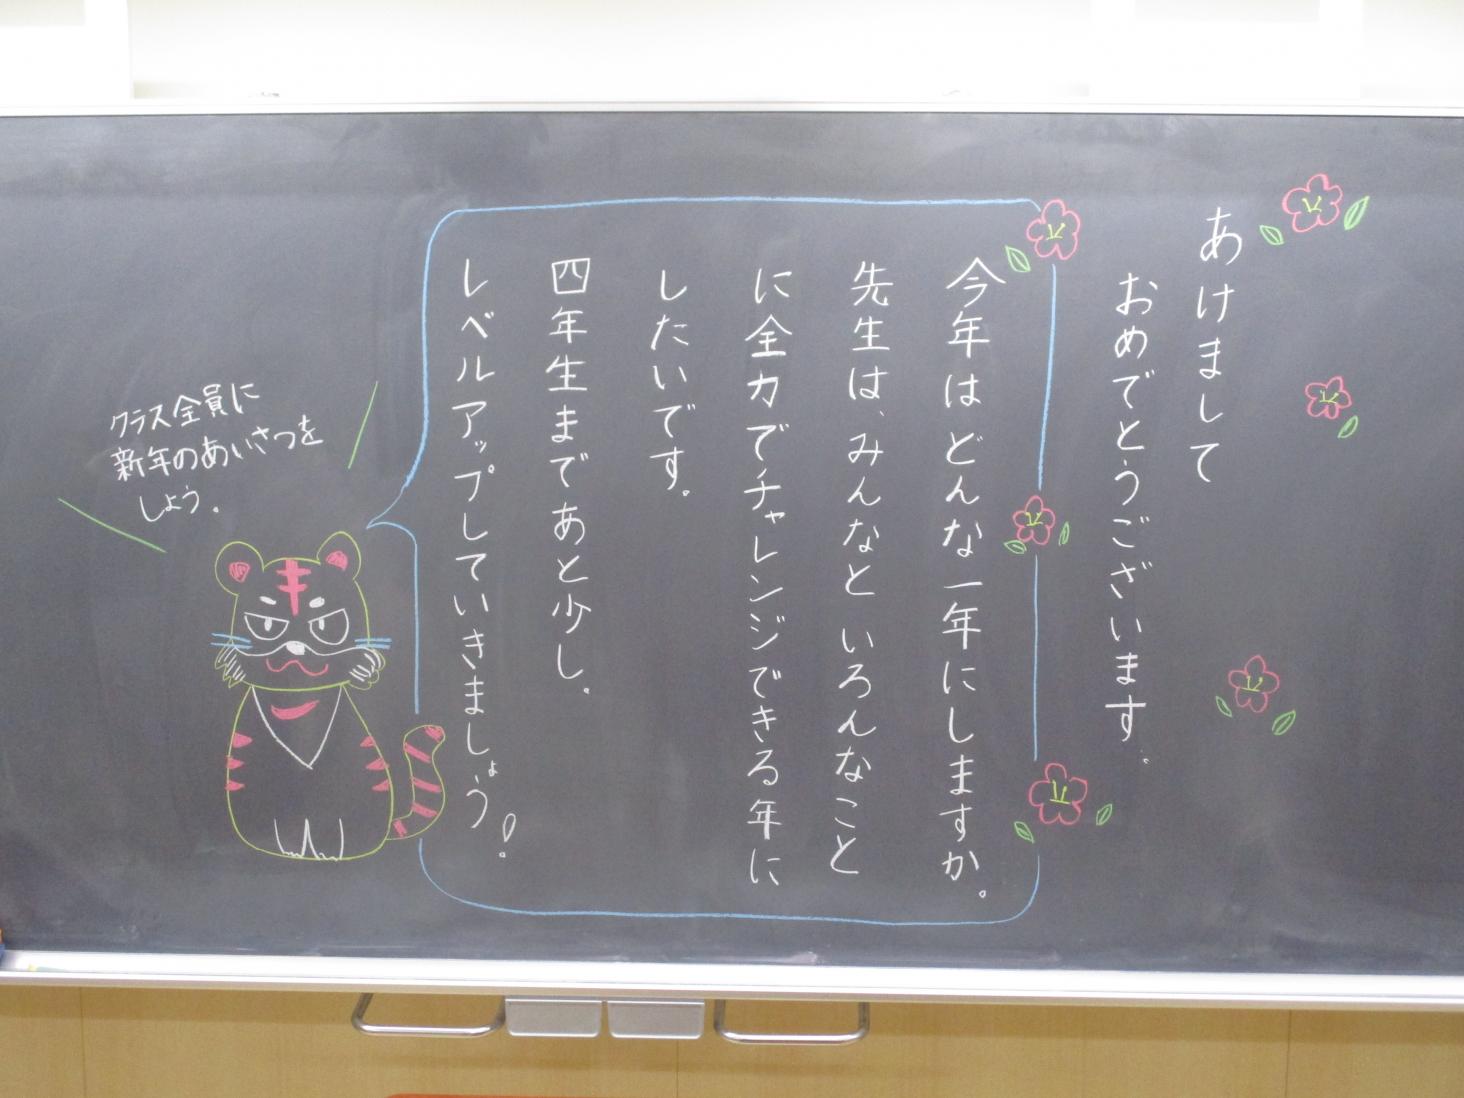 あけまして
おめでとうございます。
今年はどんな一年にしますか。
先生は、みんなといろんなこと
に全力でチャレンジできる年に
したいです。
四年生まであと少し。
レベルアップしていきましょう!
クラス全員に
新年のあいさつを
しよう。